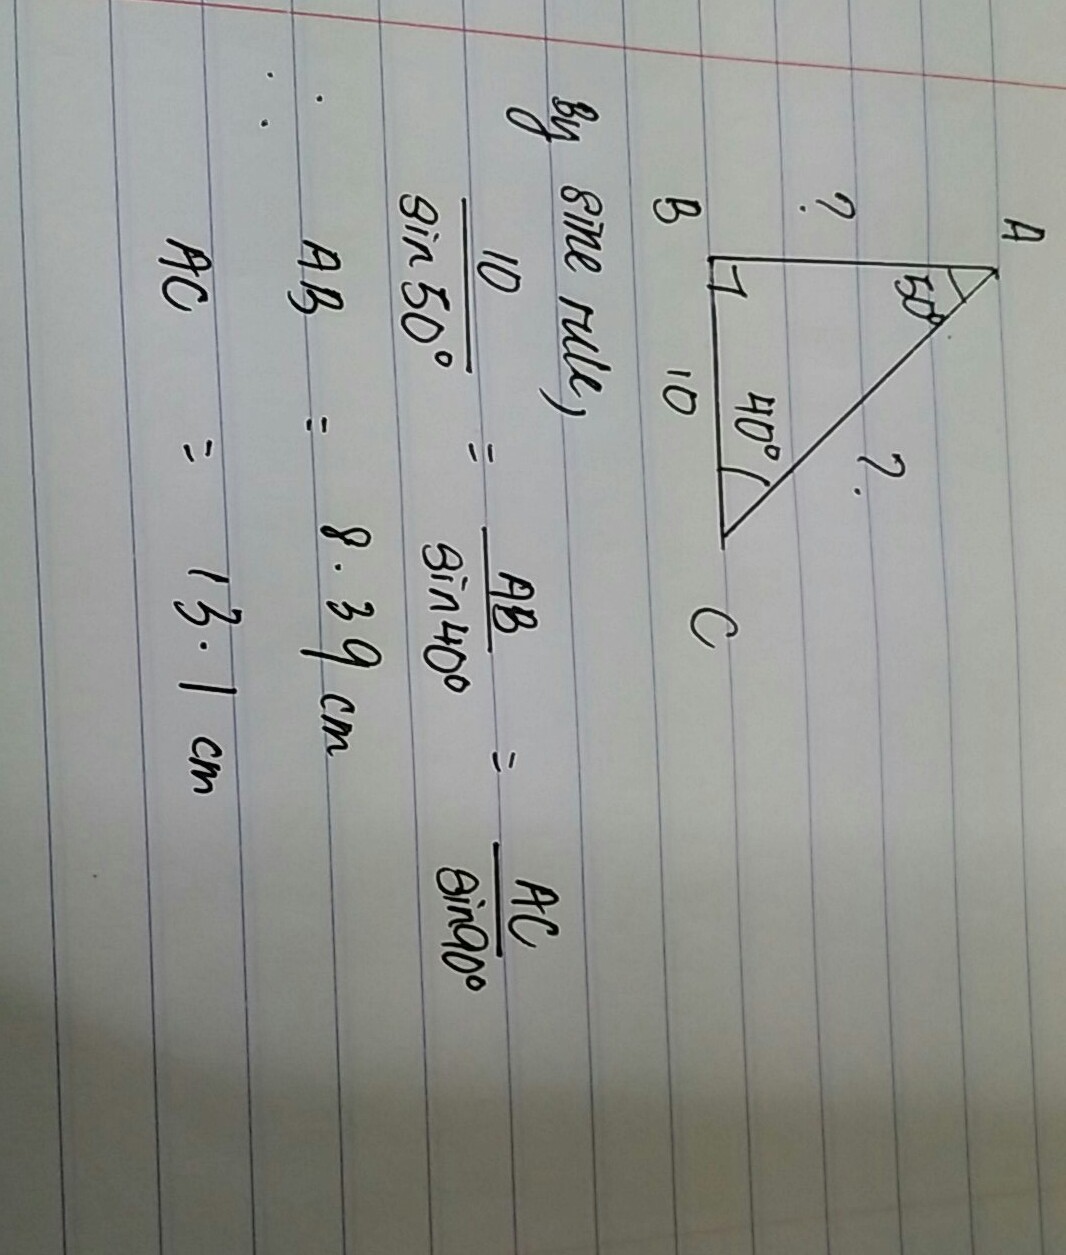 A
50°
? ?.
40°
B 10 C
By sine rule,
10/sin 50° = AB/sin40° = AC/sin90°
∴ AB = 8.39 cm
AC = 13.1 cm